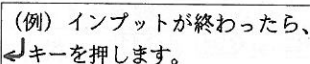 (例) インプットが終わったら、
↵キーを押します。